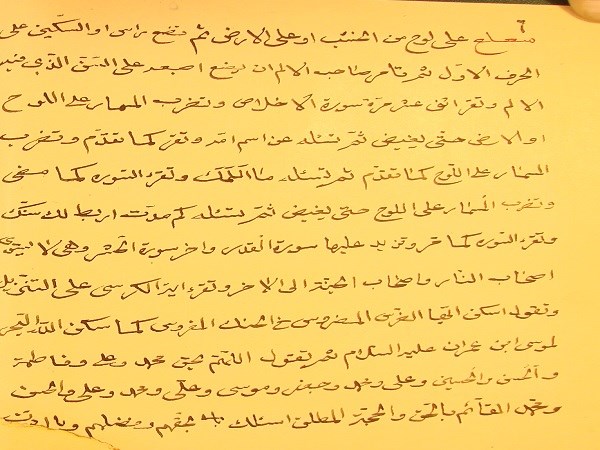 على لوح من الخشب او على الارض ثم تضع راس او السكين على
الحرف الاول ثم تامر صاحب الالم ان يضع اصبعه على السن الذي فيه
الالم وتقرا اثنى عشر مرة سورة الاخلاص وتضرب المسمار على اللوح
او الارض حتى يغيض ثم تسئله عن اسم امه وتقرء كما تقدم وتضرب
المسمار على اللوح كما تقدم ثم تسئله ما الملك وتقرء السوره كما مضى
وتضرب المسمار على اللوح حتى يغيض ثم تسئله كم مدت اربط لك سنك
وتقرء السوره كما مر وتزيد عليها سورة القدر واخر سورة الحشر وهي لا يستوي
اصحاب النار واصحاب الجنة الى الاخر وتقرء اية الكرسي على
وتقول اسكن ايها الضرس المضروس في الحنك المغروس كما سكن البحر
لموسى ابن عمران عليه السلام ثم يقول اللهم بحق محمد وعلي وفاطمة
والحسن والحسين وعلى ومحمد وجعفر وموسى وعلى ومحمد وعلى والحسن
ومحمد القائم بالحق والحجة المطلق اسئلك بحقهم وفضلهم